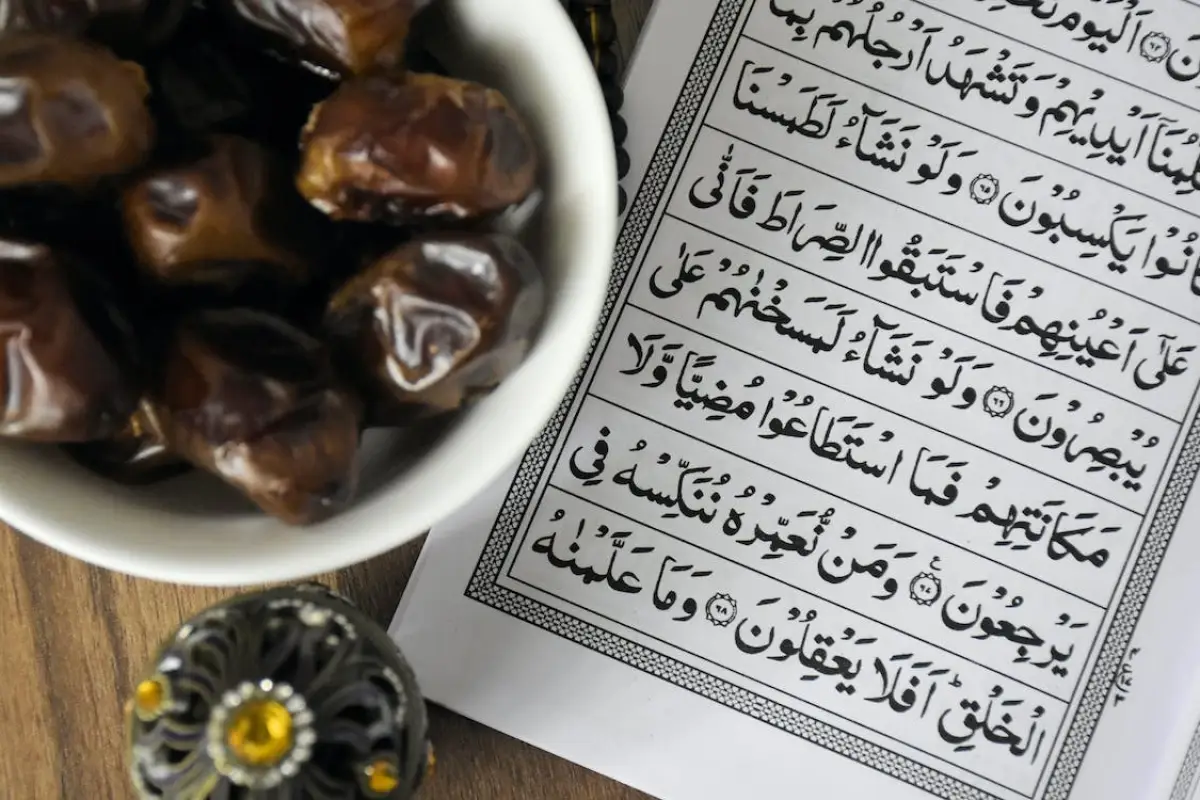 اَلْيَوْمَ
اَيْدِيْهِمْ وَتَشْهَدُ اَرْجُلُهُمْ بِمَا
كَانُوْا يَكْسِبُوْنَ ۝٦٥ وَلَوْ نَشَآءُ لَطَمَسْنَا
عَلٰٓى اَعْيُنِهِمْ فَاسْتَبَقُوا الصِّرَاطَ فَاَنّٰى
يُبْصِرُوْنَ ۝٦٦ وَلَوْ نَشَآءُ لَمَسَخْنٰهُمْ عَلٰى
مَكَانَتِهِمْ فَمَا اسْتَطَاعُوْا مُضِيًّا وَّلَا
يَرْجِعُوْنَ ۝ وَمَنْ نُّعَمِّرْهُ نُنَكِّسْهُ فِى
الْخَلْقِ ؕ اَفَلَا يَعْقِلُوْنَ ۝٦٨ وَمَا عَلَّمْنٰهُ